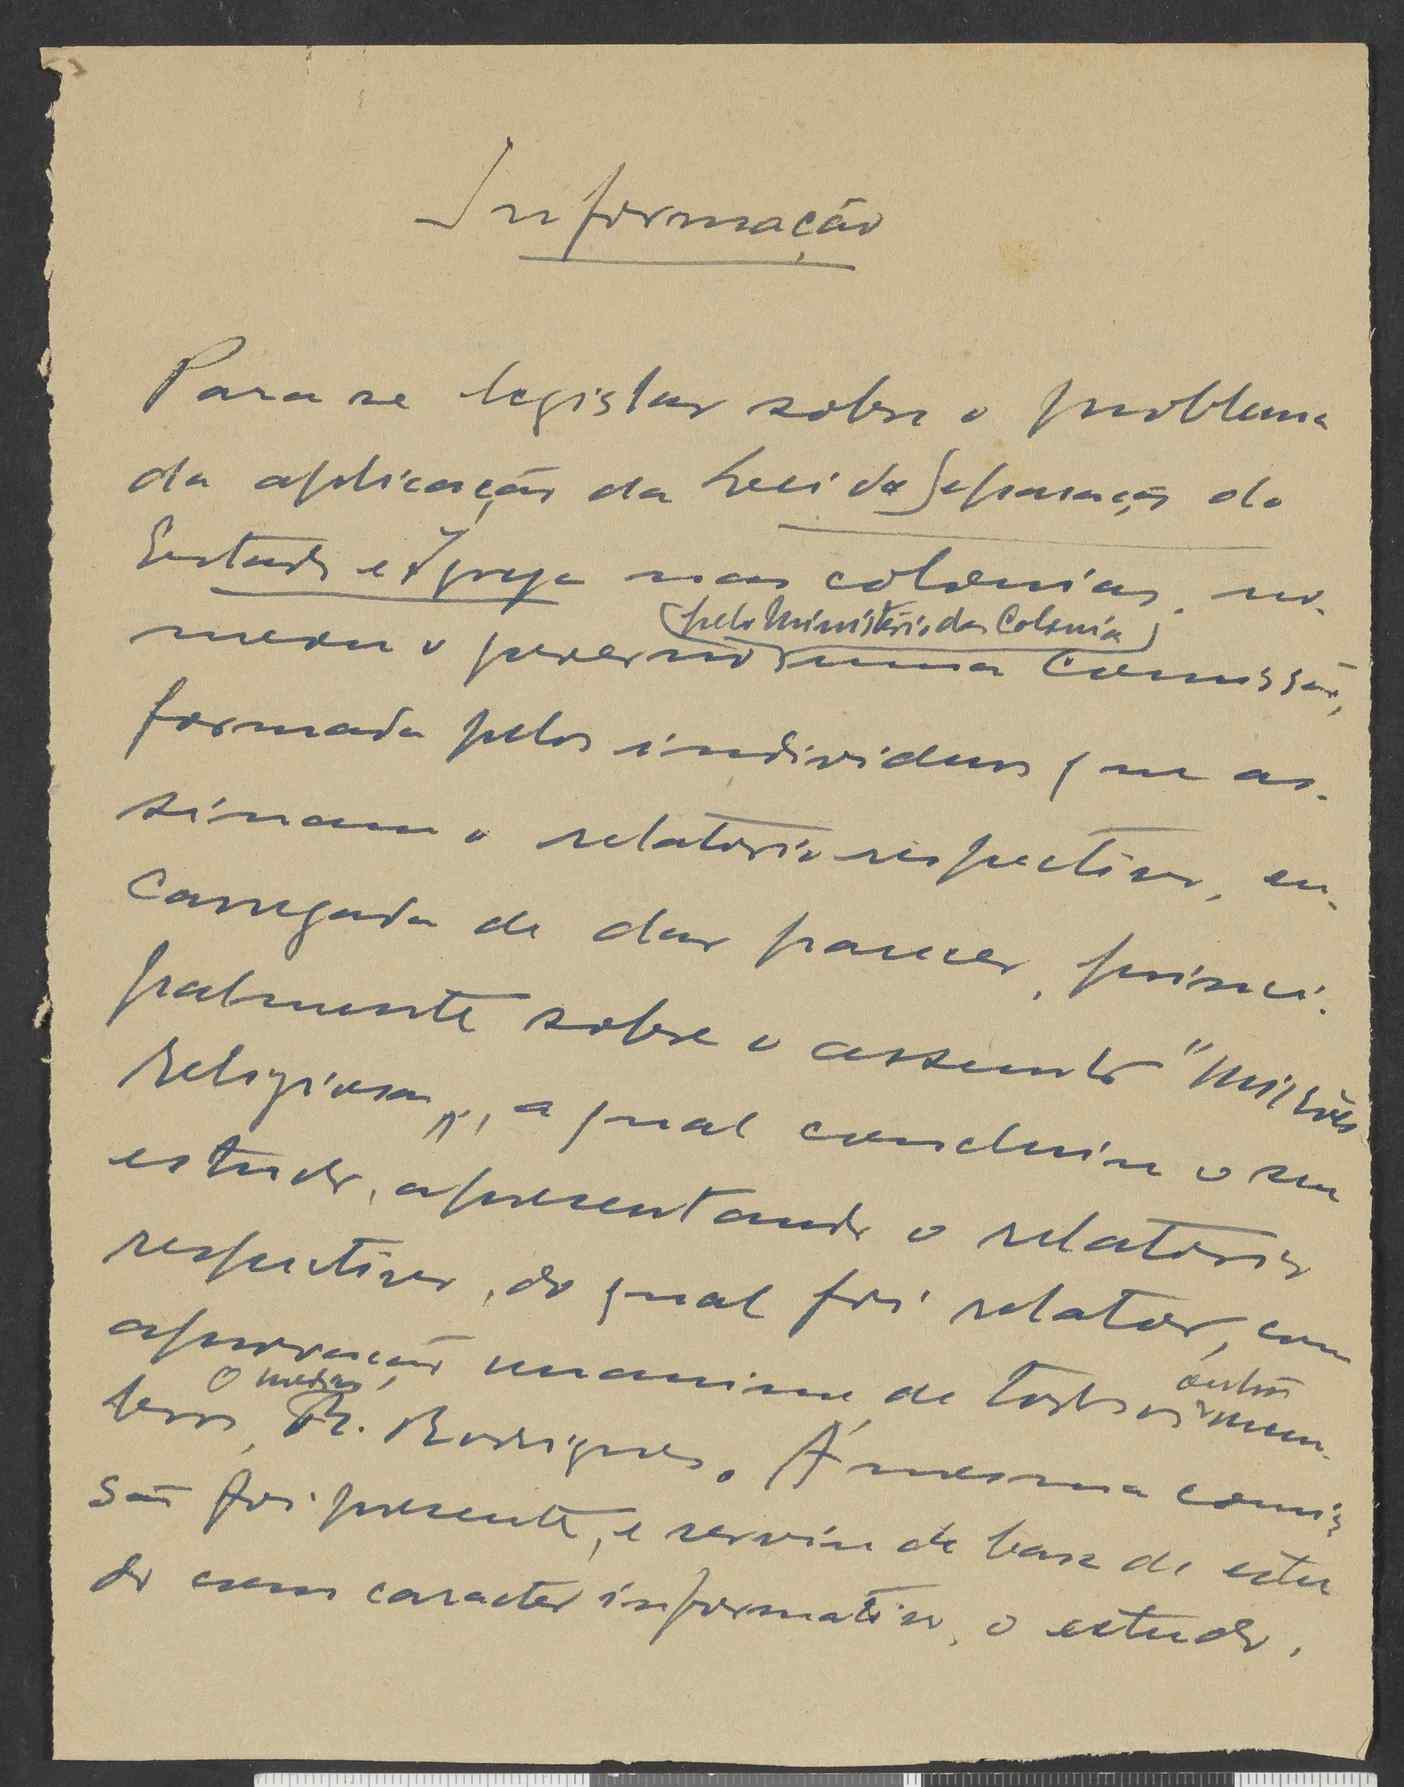 Informação
Para se legislar sobre o problema
da aplicação da Lei da Separação do
Estado e Igreja nas colonias, no-
(pelo Ministério das Colonias)
meou o governo uma Comissão,
formada pelos individuos que as-
sinam o relatorio respectivo, en-
carregada de dar parecer, princi-
palmente sobre o assunto "Missões
Religiosas", a qual concluiu o seu
estudo, apresentando o relatorio
respectivo, do qual foi relator, com
aprovação unanime de todos os outros mem-
bros, o medico Dr. Rodrigues. Á mesma comis-
são foi presente, e serviu de base de estu
do com caracter informativo, o estudo,